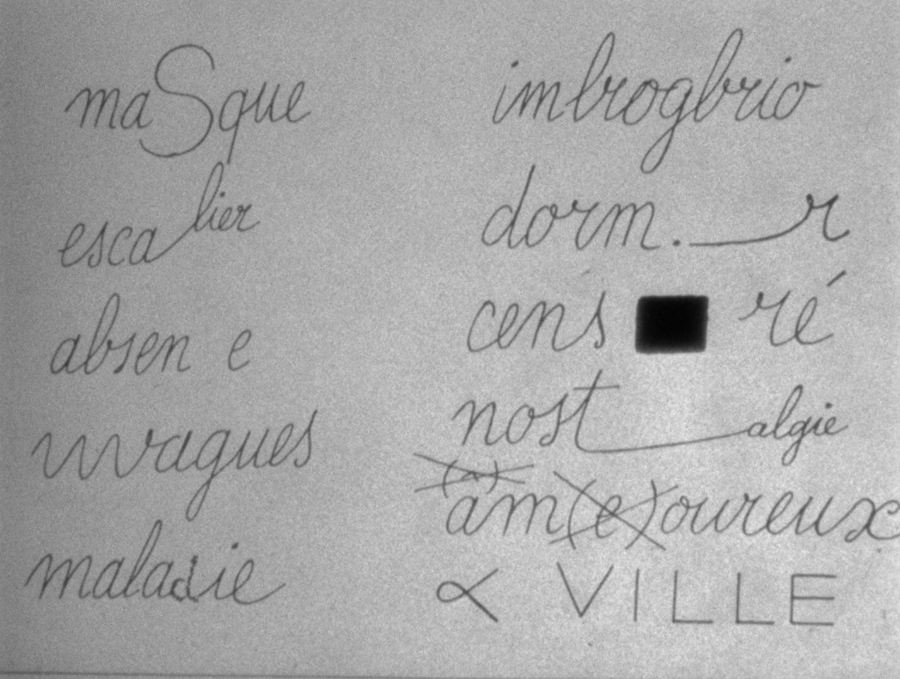 maSque
escalier
absen e
vvvagues
maladie
imbrogbrio
dorm. r
cens ■ ré
nost algie
(^)
am(e)oureux
α VILLE